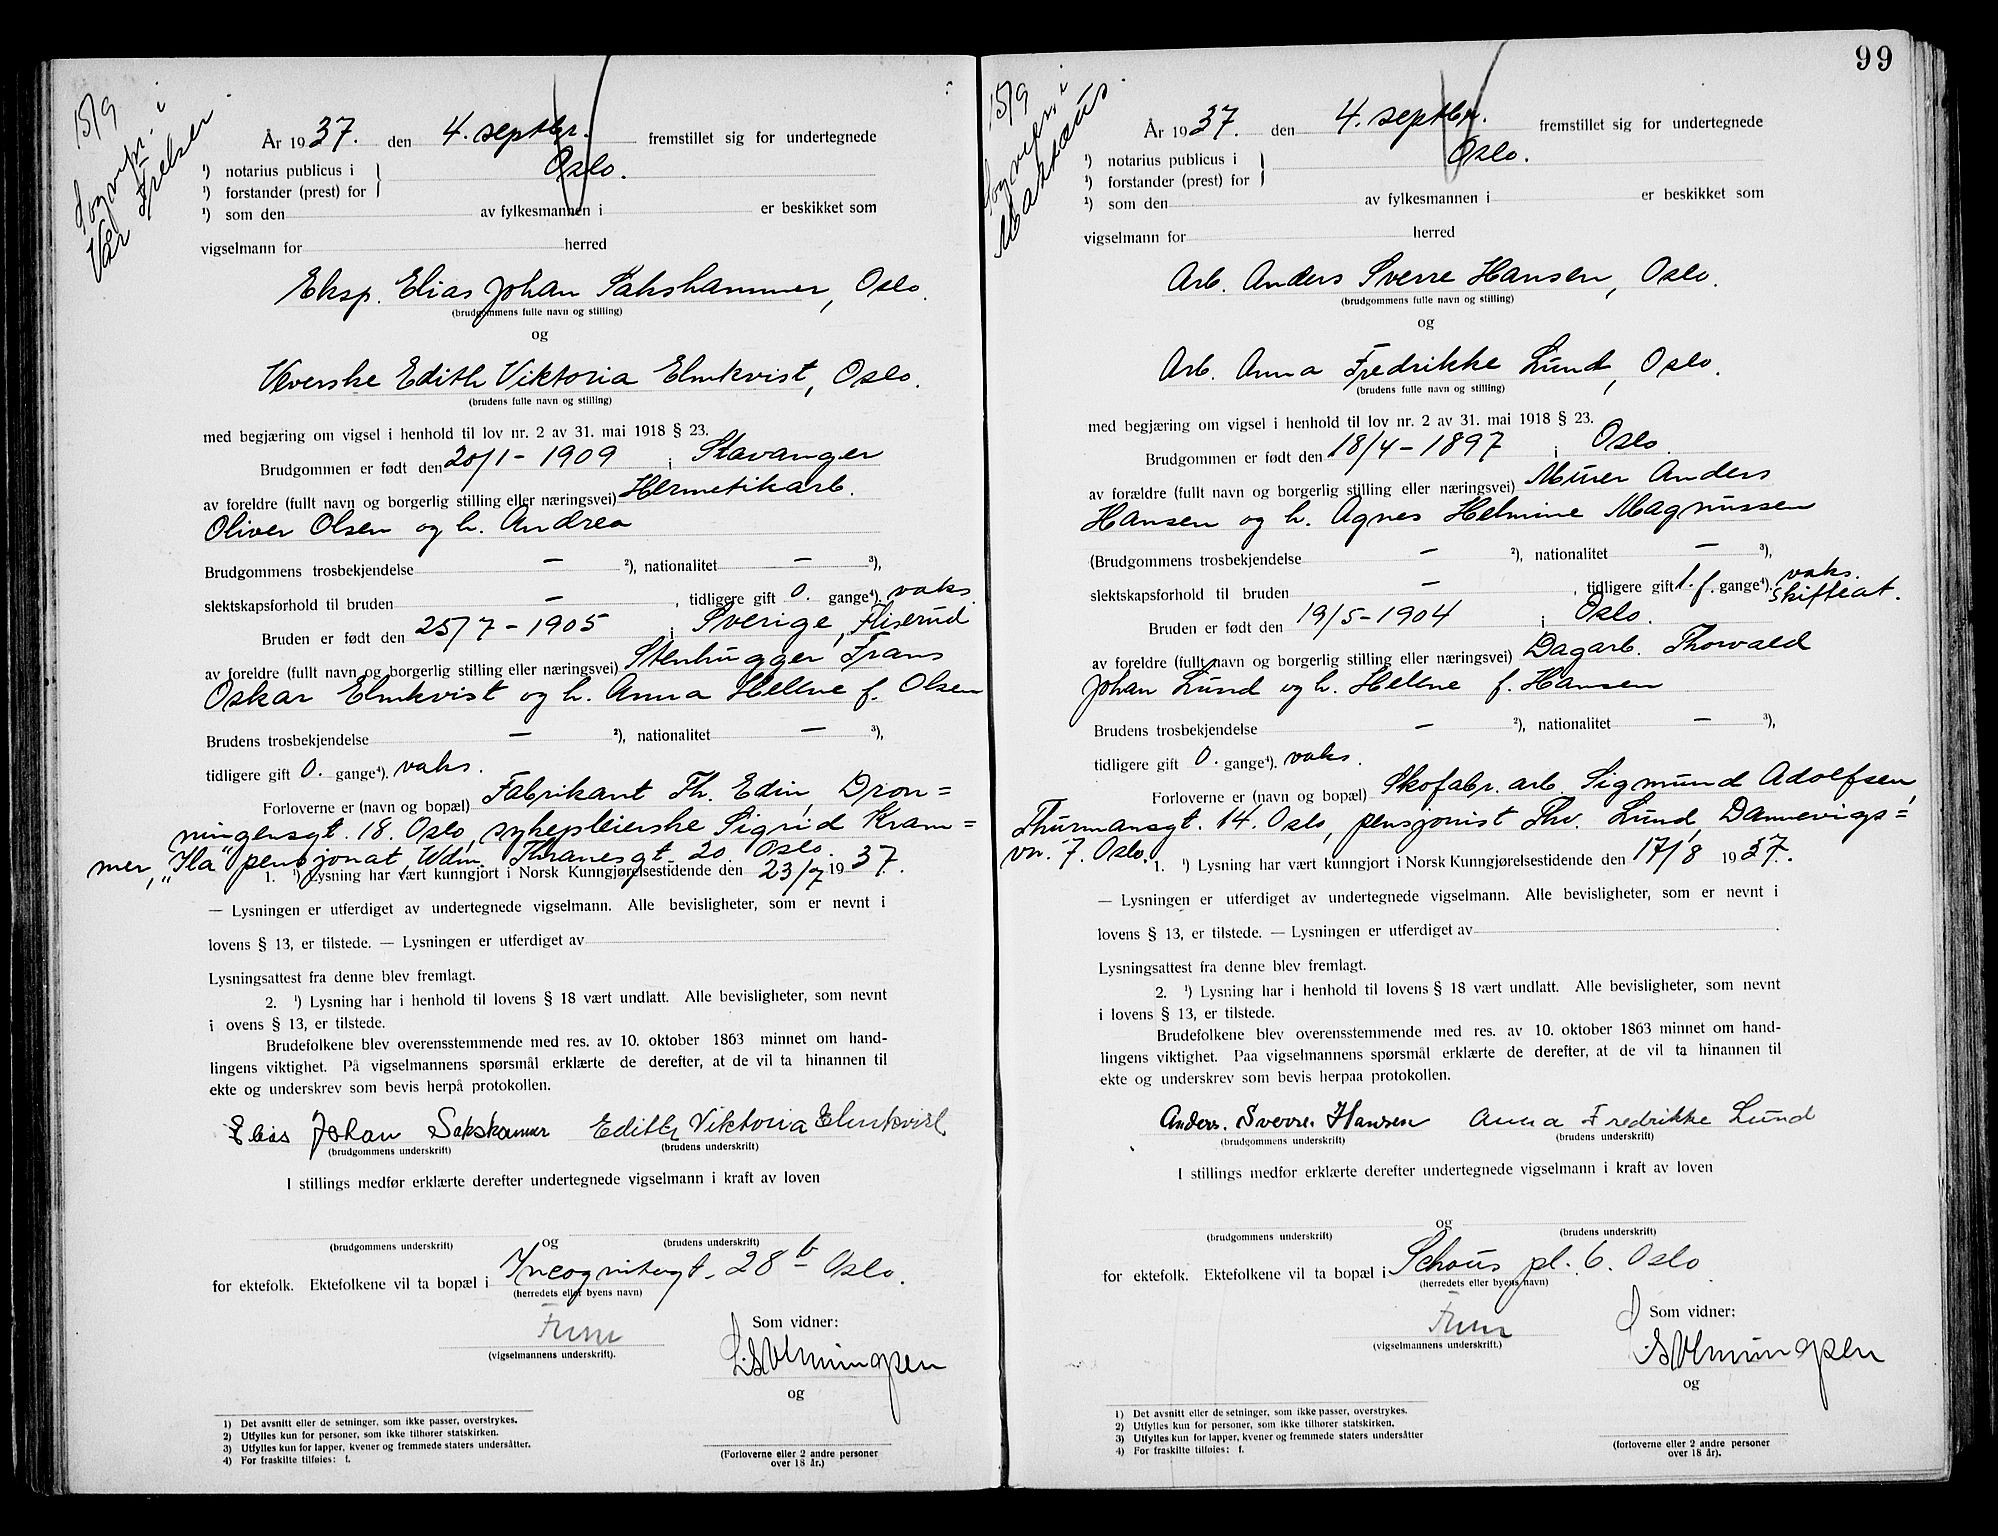 15/9
Sogneprs. i
Vår Frelser
År 1937. den 4. septbr. fremstillet sig for undertegnede
¹) notarius publicus i } Oslo.
¹) forstander (prest) for
¹) som den av fylkesmannen i er beskikket som
vigselmann for herred
Eksp. Elias Johan Sakshammer, Oslo.
(brudgommens fulle navn og stilling)
og
Veverske Edith Viktoria Elmkvist, Oslo.
(brudens fulle navn og stilling)
med begjæring om vigsel i henhold til lov nr. 2 av 31. mai 1918 § 23.
Brudgommen er født den 20/1 - 1909 i Stavanger
av foreldre (fullt navn og borgerlig stilling eller næringsvei) Hermetikarb.
Oliver Olsen og h. Andrea
Brudgommens trosbekjendelse — ²), nationalitet — ³),
slektskapsforhold til bruden — , tidligere gift 0. gange⁴). vaks.
Bruden er født den 25/7 - 1905 i Sverige, Fliserud
av foreldre (fullt navn og borgerlig stilling eller næringsvei) Stenhugger Frans
Oskar Elmkvist og h. Anna Hellne f. Olsen
Brudens trosbekjendelse — ²), nationalitet — ³),
tidligere gift 0. gange⁴). vaks.
Forloverne er (navn og bopæl) Fabrikant Th. Edin, Dron=
ningensgt. 18. Oslo, sykepleierske Sigrid Kram=
mer, "Ila" pensjonat, Wdm. Thranesgt. 20. Oslo.
1. ¹) Lysning har vært kunngjort i Norsk Kunngjørelsestidende den 23/7 1937.
— Lysningen er utferdiget av undertegnede vigselmann. Alle bevisligheter, som er nevnt i
lovens § 13, er tilstede. — Lysningen er utferdiget av
Lysningsattest fra denne blev fremlagt.
2. ¹) Lysning har i henhold til lovens § 18 vært undlatt. Alle bevisligheter, som nevnt
i ovens § 13, er tilstede.
Brudefolkene blev overensstemmende med res. av 10. oktober 1863 minnet om hand-
lingens viktighet. På vigselmannens spørsmål erklærte de derefter, at de vil ta hinannen til
ekte og underskrev som bevis herpå protokollen.
Elias Johan Sakshammer Edith Viktoria Elmkvist
(brudgommens underskrift) (brudens underskrift)
I stillings medfør erklærte derefter undertegnede vigselmann i kraft av loven
og
(brudgommens underskrift) (brudens underskrift)
for ektefolk. Ektefolkene vil ta bopæl i Incognitogt. 28 b Oslo.
(herredets eller byens navn)
Som vidner:
(vigselmannens underskrift).
og
1) Det avsnitt eller de setninger, som ikke passer, overstrykes.
2) Utfylles kun for personer, som ikke tilhører statskirken.
3) Utfylles kun for lapper, kvener og fremmede staters undersåtter.
4) For fraskilte tilføies: f.
(Forloverne eller 2 andre personer
over 18 år.)
99
15/9
Sogneprs. i
Matthæus
År 1937. den 4. septbr. fremstillet sig for undertegnede
¹) notarius publicus i } Oslo.
¹) forstander (prest) for
²) som den av fylkesmannen i er beskikket som
vigselmann for herred
Arb. Anders Sverre Hansen, Oslo.
(brudgommens fulle navn og stilling)
og
Arb. Anna Fredrikke Lund, Oslo.
(brudens fulle navn og stilling)
med begjæring om vigsel i henhold til lov nr. 2 av 31. mai 1918 § 23.
Brudgommen er født den 18/4 - 1897 i Oslo.
av forældre (fullt navn og borgerlig stilling eller næringsvei) Murer Anders
Hansen og h. Agnes Helmine Magnussen
(Brudgommens trosbekjendelse — ²), nationalitet — ³),
slektskapsforhold til bruden — , tidligere gift 1. f. gange⁴). vaks. skifteat.
Bruden er født den 19/5 - 1904 i Oslo.
av foreldre (fullt navn og borgerlig stilling eller næringsvei) Dagarb. Thorvald
Johan Lund og h. Hellne f. Hansen
Brudens trosbekjendelse — ²), nationalitet — ³),
tidligere gift 0. gange⁴). vaks.
Forloverne er (navn og bopæl) Skofabr. arb. Sigmund Adolfsen,
Thurmansgt. 14. Oslo, pensjonist Thv. Lund, Dannevigs=
vn. 7. Oslo.
1. ¹) Lysning har vært kunngjort i Norsk Kunngjørelsestidende den 17/8 1937.
— Lysningen er utferdiget av undertegnede vigselmann. Alle bevisligheter, som er nevnt i
lovens § 13, er tilstede. — Lysningen er utferdiget av
Lysningsattest fra denne blev fremlagt.
2. ¹) Lysning har i henhold til lovens § 18 vært undlatt. Alle bevisligheter, som nevnt
i lovens § 13, er tilstede.
Brudefolkene blev overensstemmende med res. av 10. oktober 1863 minnet om hand-
lingens viktighet. Paa vigselmannens spørsmål erklærte de derefter, at de vil ta hinannen til
ekte og underskrev som bevis herpaa protokollen.
Anders. Sverre. Hansen Anna Fredrikke Lund
(brudgommens underskrift) (brudens underskrift)
I stillings medfør erklærte derefter undertegnede vigselmann i kraft av loven
og
(brudgommens underskrift) (brudens underskrift)
for ektefolk. Ektefolkene vil ta bopæl i Schous pl. 6. Oslo
(herredets eller byens navn)
Som vidner:
(vigselmannens underskrift.)
og
1) Det avsnitt eller de setninger, som ikke passer, overstrykes.
2) Utfylles kun for personer, som ikke tilhører statskirken.
3) Utfylles kun for lapper, kvener og fremmede staters undersåtter
4) For fraskilte tilføies: f.
(forloverne eller 2 andre personer
over 18 år).